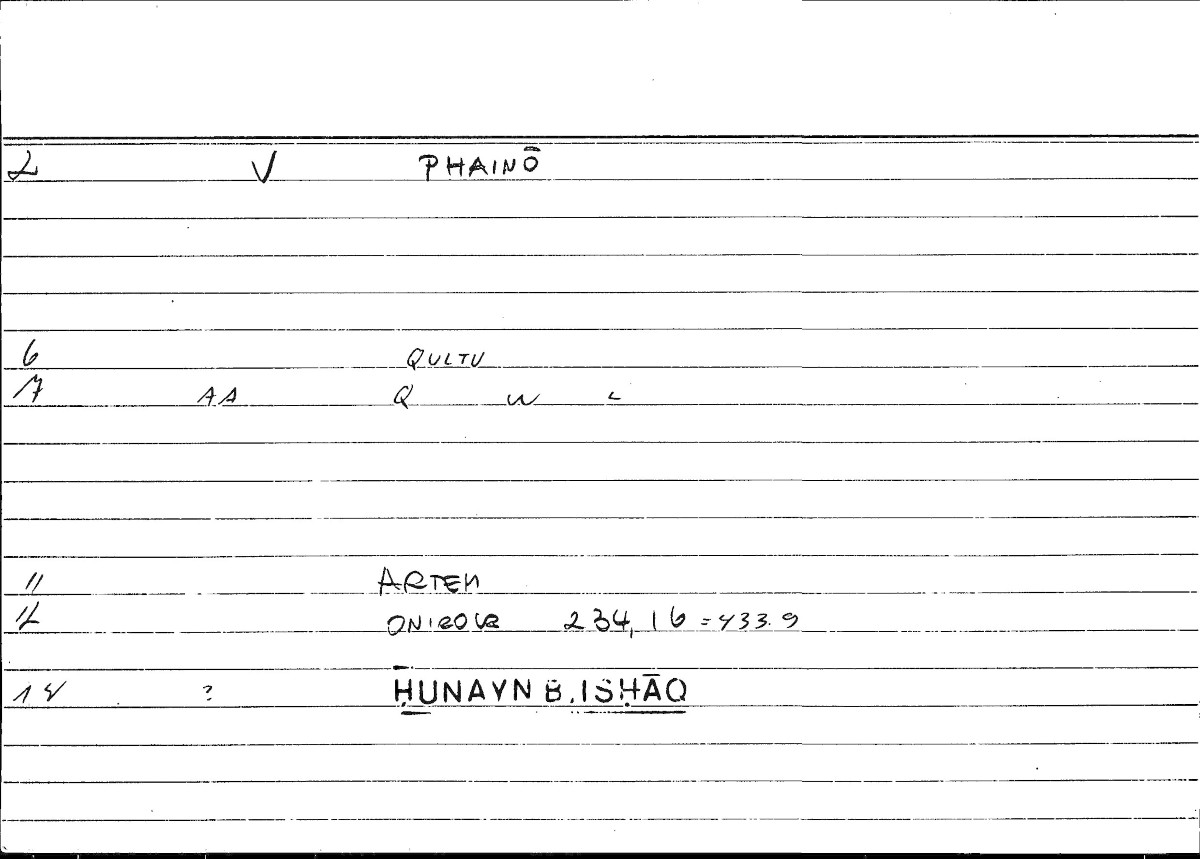 2 V PHAINŌ
6 QULTU
7 AA Q W L
11 ARTEM
12 ONIROCR 234,16 = 433.9
14 ? ḤUNAYN B. ISḤĀQ